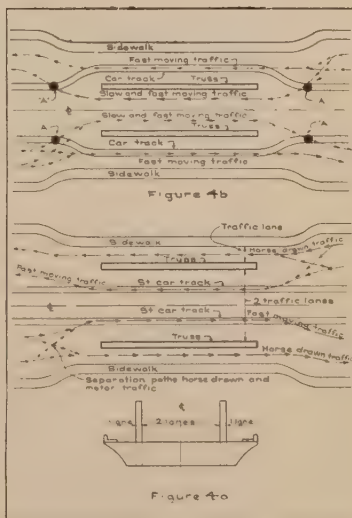 Sidewalk
Fast moving traffic
Car track Truss
Slow and fast moving traffic
"A" A
℄
A Slow and fast moving traffic "A"
Truss
Car track
Fast moving traffic
Sidewalk
Figure 4b
Traffic lane
Sidewalk Horse drawn traffic
Truss
Fast moving traffic
St car track
℄ 2 traffic lanes
St car track
Fast moving traffic
Truss
Horse drawn traffic
Sidewalk
Separation paths horse drawn and
motor traffic
℄
1 lane 2 lanes 1 lane
Figure 4a